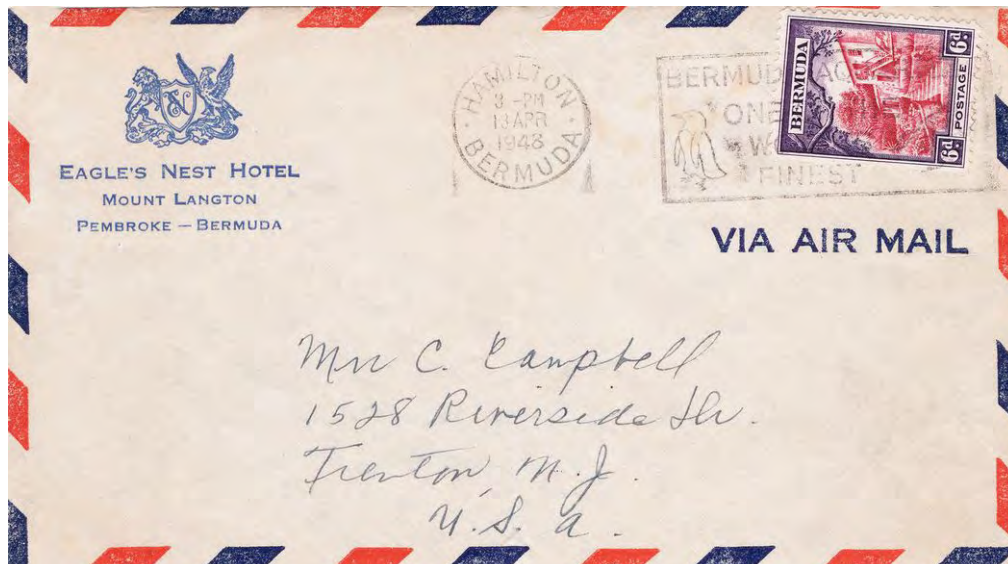 EAGLE'S NEST HOTEL
MOUNT LANGTON
PEMBROKE – BERMUDA
HAMILTON
3 - PM
13 APR
1948
BERMUDA
BERMUD AQ
ONE
W
FINEST
BERMUDA
6d
POSTAGE
6d
VIA AIR MAIL
C. Campbell
1528 Riverside Dr.
Trenton, N. J.
U. S. A.